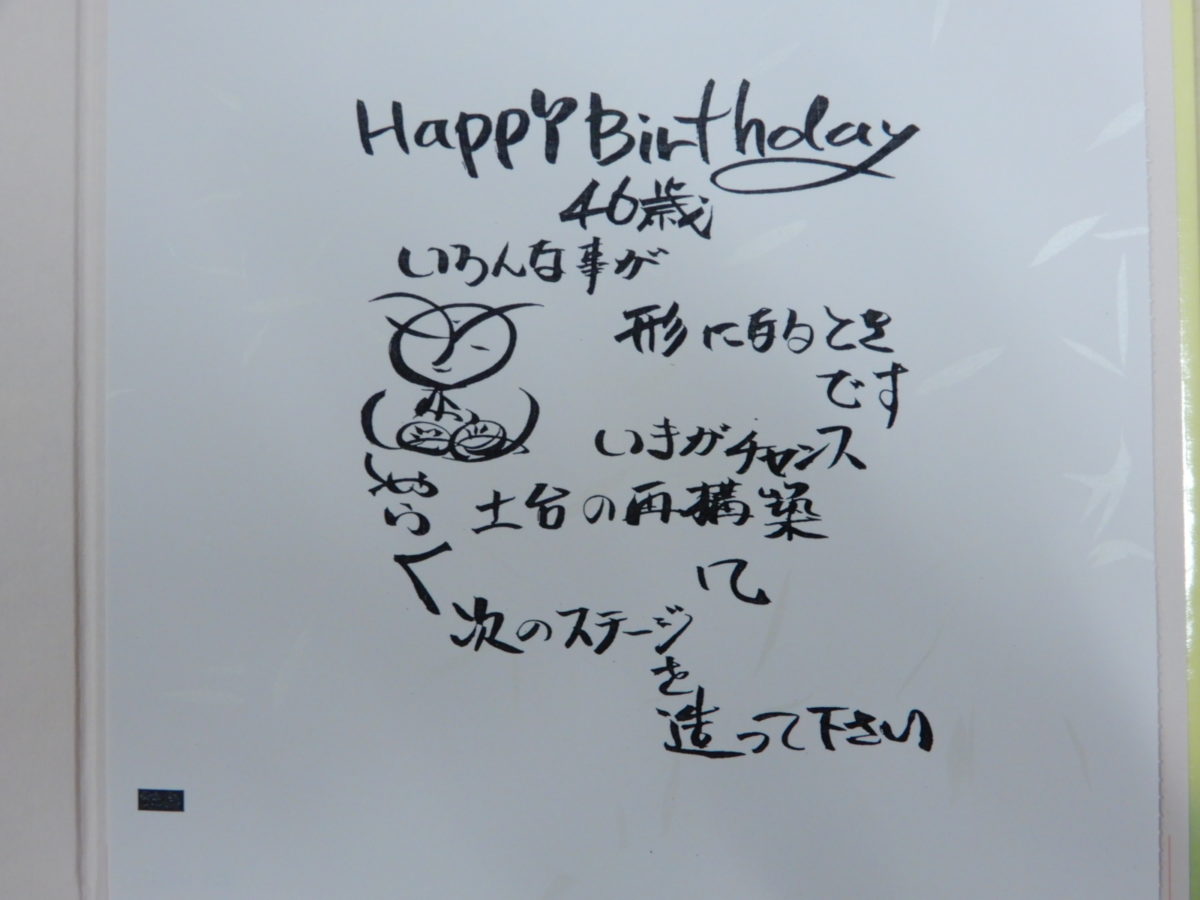 Happy Birthday
46歳
いろんな事が
形になるとき
です
いまがチャンス
土台の再構築
次のステージ
を
造って下さい